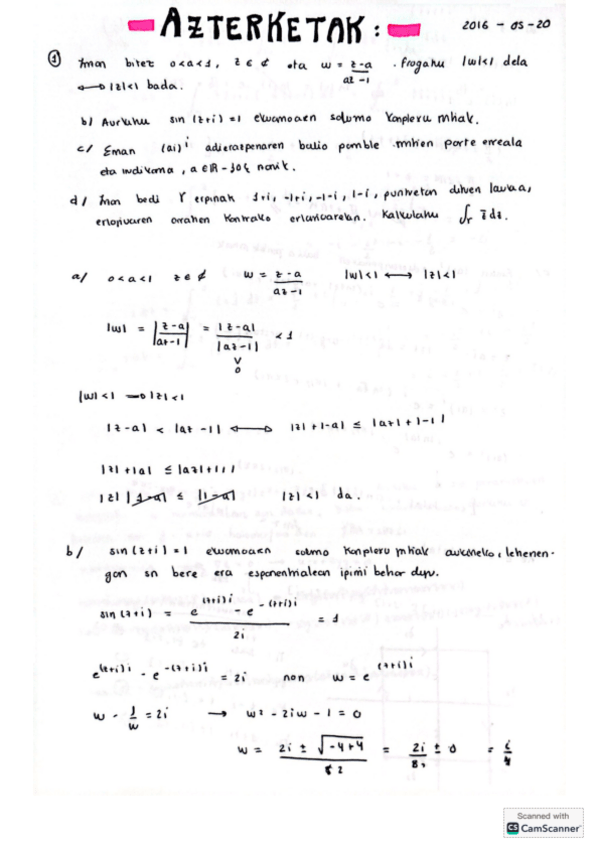 AZTERKETAK: 2016-05-20
① Izan bitez 0<a<1, z∈¢ eta w = z-a / az-1 . Frogatu |w|<1 dela
⟷ |z|<1 bada.
b/ Aurkitu sin (z+i) =1 ekuazioaren soluzio konplexu guztiak.
c/ Eman (ai)^i adierazpenaren balio posible guztien parte erreala
eta irudikaria, a∈R-{0} izanik.
d/ Izan bedi γ erpinak 1+i, -1+i, -1-i, 1-i, puntuetan dituen laukia,
erlojuaren orratzen kontrako Kalkulatu ∫γ z̄ dz.
a/ 0<a<1 z∈¢ w = z-a / az-1 |w|<1 ⟷ |z|<1
|w| = |z-a / az-1| = |z-a| / |az-1| < 1
V
0
|w|<1 → |z|<1
|z-a| < |az-1| ⟷ |z|+|-a| ≤ |az|+|-1|
|z|+|a| ≤ |az|+|1|
|z| |1-a| ≤ |1-a| |z|<1 da.
b/ sin(z+i)=1 ekuazioaren soluzio konplexu guztiak aurkitzeko, lehenen-
gon sin bere era esponentzialean ipini behar dugu.
sin(z+i) = e^(z+i)i - e^-(z+i)i / 2i = 1
e^(z+i)i - e^-(z+i)i = 2i non w = e^(z+i)i
w - 1/w = 2i → w² - 2iw - 1 = 0
w = 2i ± √-4+4 / 2 = 2i ± 0 / 8 = i/4
Scanned with
CS CamScanner